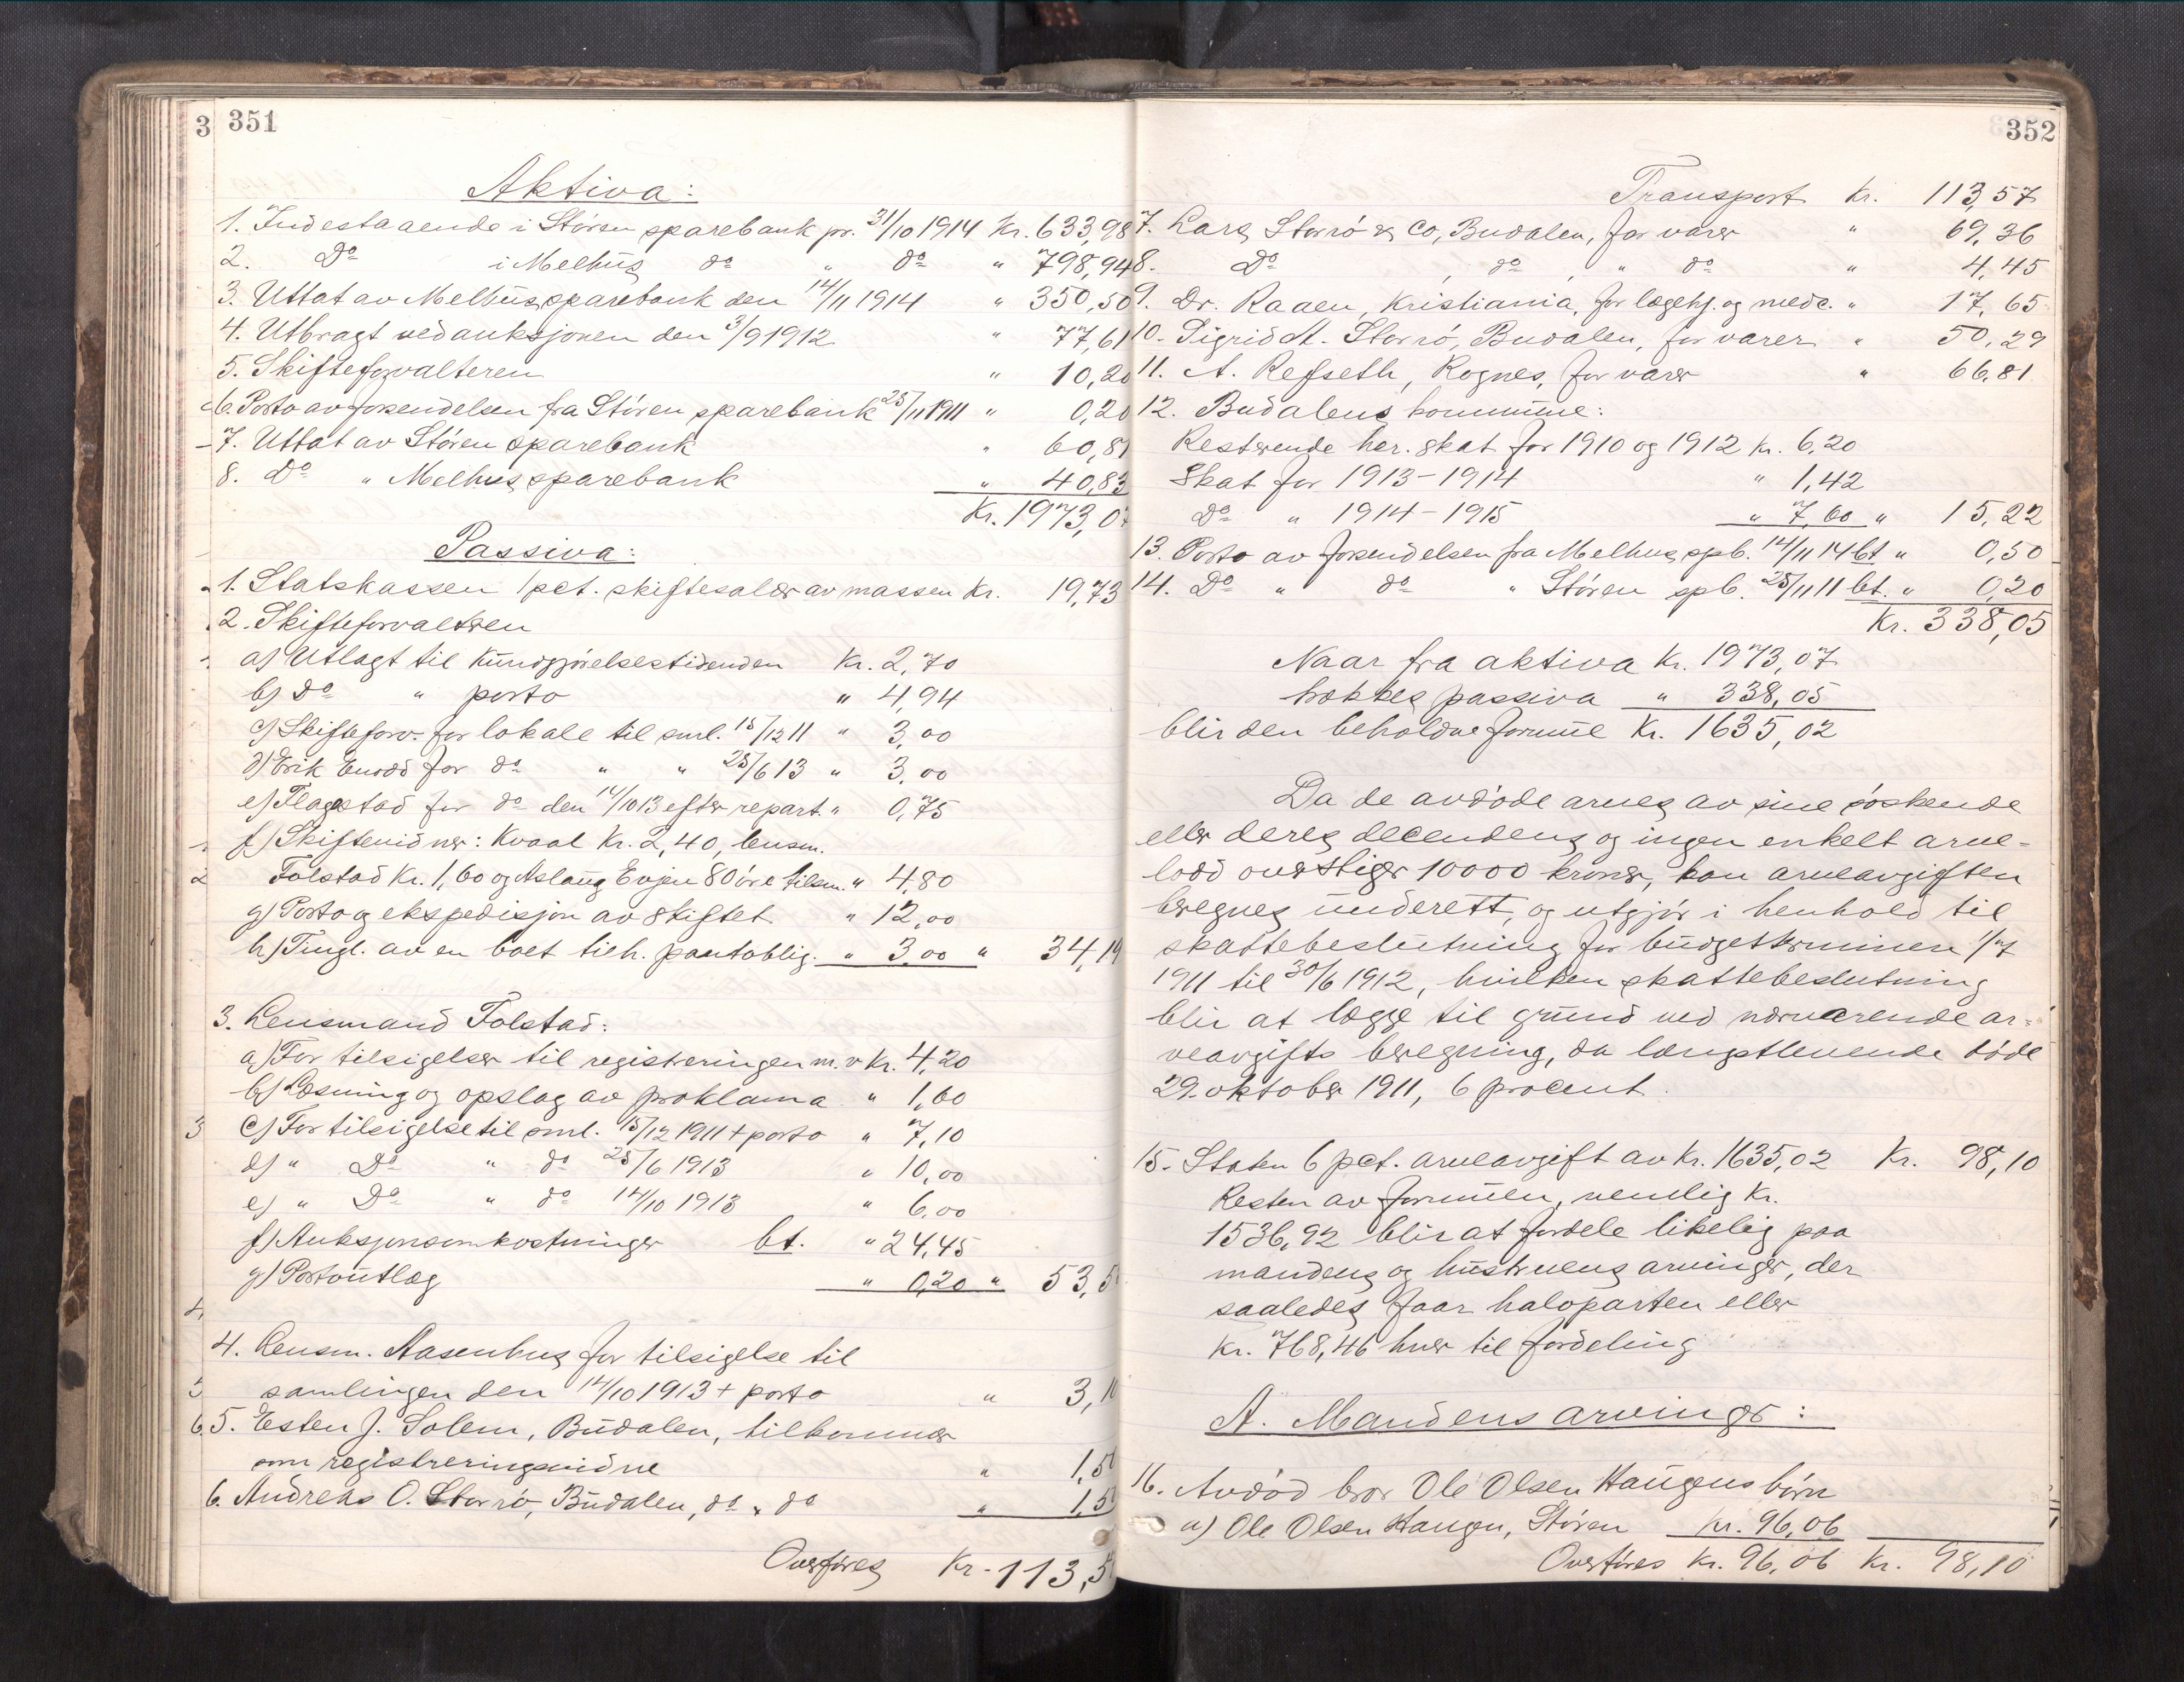 3 351
Aktiva:
1. Indestaaende i Støren sparebank pr. 31/10 1914 Kr. 633,98
2. Do i Melhus do " do " 798,94
3. Uttat av Melhus sparebank den 14/11 1914 " 350,50
4. Utbragt ved auksjonen den 3/9 1912 " 77,61
5. Skifteforvalteren " 10,20
6. Porto av forsendelsen fra Støren sparebank 25/11 1911 " 0,20
7. Uttat av Støren sparebank " 60,81
8. Do " Melhus sparebank " 40,83
Kr. 1973,07
Passiva:
1. Statskassen 1 pct. skiftesalær av massen Kr. 19,73
2. Skifteforvalteren
a) Utlagt til Kundgjørelsestidenden Kr. 2,70
b) Do " porto " 4,94
c) Skifteforv. for lokale til sml. 15/12 11 " 3,00
d) Erik Enodd for do " " 25/6 13 " 3,00
e) Flagstad for do den 14/10 13 efter repart. " 0,75
f) Skiftevidner: Kvaal Kr. 2,40, lensm.
2 Folstad Kr. 1,60 og Aslaug Evjen 80 øre tilsm. " 4,80
g) Porto og ekspedisjon av skiftet " 12,00
h) Tingl. av en boet tilh. pantoblig. " 3,00 " 34,19
3. Lensmand Folstad:
a) For tilsigelser til registreringen m.v. Kr. 4,20
b) Læsning og opslag av proklama " 1,60
3 c) For tilsigelse til sml. 15/12 1911 + porto " 7,10
d) " Do " do 25/6 1913 " 10,00
e) " Do " do 14/10 1913 " 6,00
f) Auksjonsomkostninger bt. " 24,45
g) Portoutlæg " 0,20 " 53,5
4
4. Lensm. Aasenhus for tilsigelse til
samlingen den 14/10 1913 + porto " 3,10
5. Esten J. Solem, Budalen, tilkommer
som registreringsvidne " 1,5
6. Andreas O. Storrø, Budalen, do " do " 1,5
Overføres Kr. 113,5
352
Transport Kr. 113,57
7. Lars Storrø & Co, Budalen, for varer " 69,36
8. Do , do , " do " 4,45
9. Dr. Raaen, Kristiania, for lægehj. og medc. " 17,65
10. Sigrid A. Storrø, Budalen, for varer " 50,29
11. A. Refseth, Rognes, for varer " 66,81
12. Budalens kommune:
Resterende her. skat for 1910 og 1912 Kr. 6,20
Skat for 1913-1914 " 1,42
Do " 1914-1915 " 7,60 " 15,22
13. Porto av forsendelsen fra Melhus spb. 14/11 14 bt " 0,50
14. Do " do " Støren spb. 25/11 11 bt. " 0,20
Kr. 338,05
Naar fra aktiva Kr. 1973,07
trækkes passiva " 338,05
blir den beholdne formue Kr. 1635,02
Da de avdøde arves av sine søskende
eller deres decendens og ingen enkelt arve-
lodd overstiger 10000 kroner, kan arveavgiften
beregnes underett, og utgjør i henhold til
skattebeslutning for budgetterminen 1/7
1911 til 30/6 1912, hvilken skattebeslutning
blir at lægge til grund ved nærværende ar-
veavgifts beregning, da længstlevende døde
29. oktober 1911, 6 procent.
15. Staten 6 pct. arveavgift av Kr. 1635,02 Kr. 98,10
Resten av formuen, nemlig Kr.
1536,92 blir at fordele likelig paa
mandens og hustruens arvinger, der
saaledes faar halvparten eller
Kr. 768,46 hver til fordeling
A. Mandens arvinger:
16. Avdød bror Ole Olsen Haugens børn
a) Ole Olsen Haugen, Støren Kr. 96,06
Overføres Kr. 96,06 Kr. 98,10